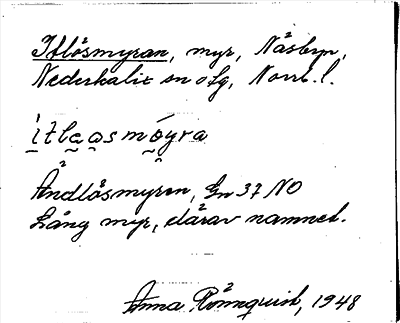 Itlåsmyran, myr, Näsbyn,
Nederkalix sn o fg, Norrb. l.
ìtlaosmóyra
Ändlåsmyren, Gn 37 NO
Lång myr, därav namnet.
Anna Rönnquist, 1948